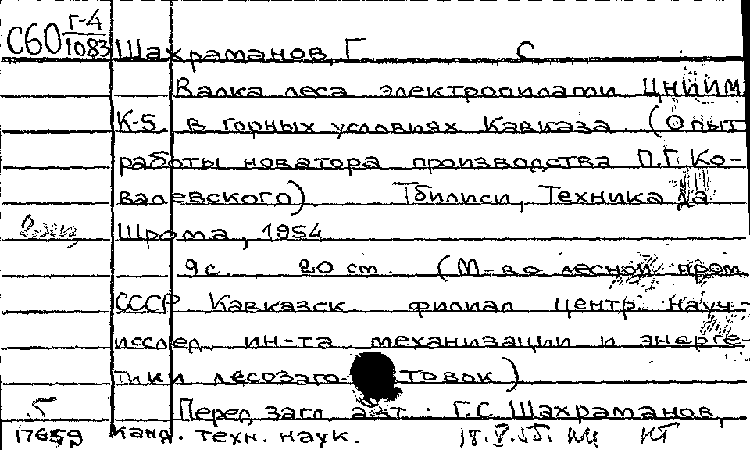 С60 Г-4
1083 Шахраманов, Г С
Валка леса электропилами ЦНИИМЭ
К-5 в горных условиях Кавказа (Опыт
работы новатора производства П.Г. Ко-
валевского) Тбилиси, Техника да
2 экз Шрома, 1954
9 с. 20 см (М-во лесной пром
СССР Кавказск филиал Центр науч-
исслед ин-та механизации и энерге
тики лесозаготовок)
5 Перед загл авт: Г.С. Шахраманов,
17659 канд. техн. наук. 18.V.55.